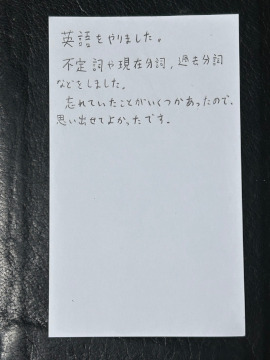 英語をやりました。
不定詞や現在分詞，過去分詞
などをしました。
忘れていたことがいくつかあったので、
思い出せてよかったです。